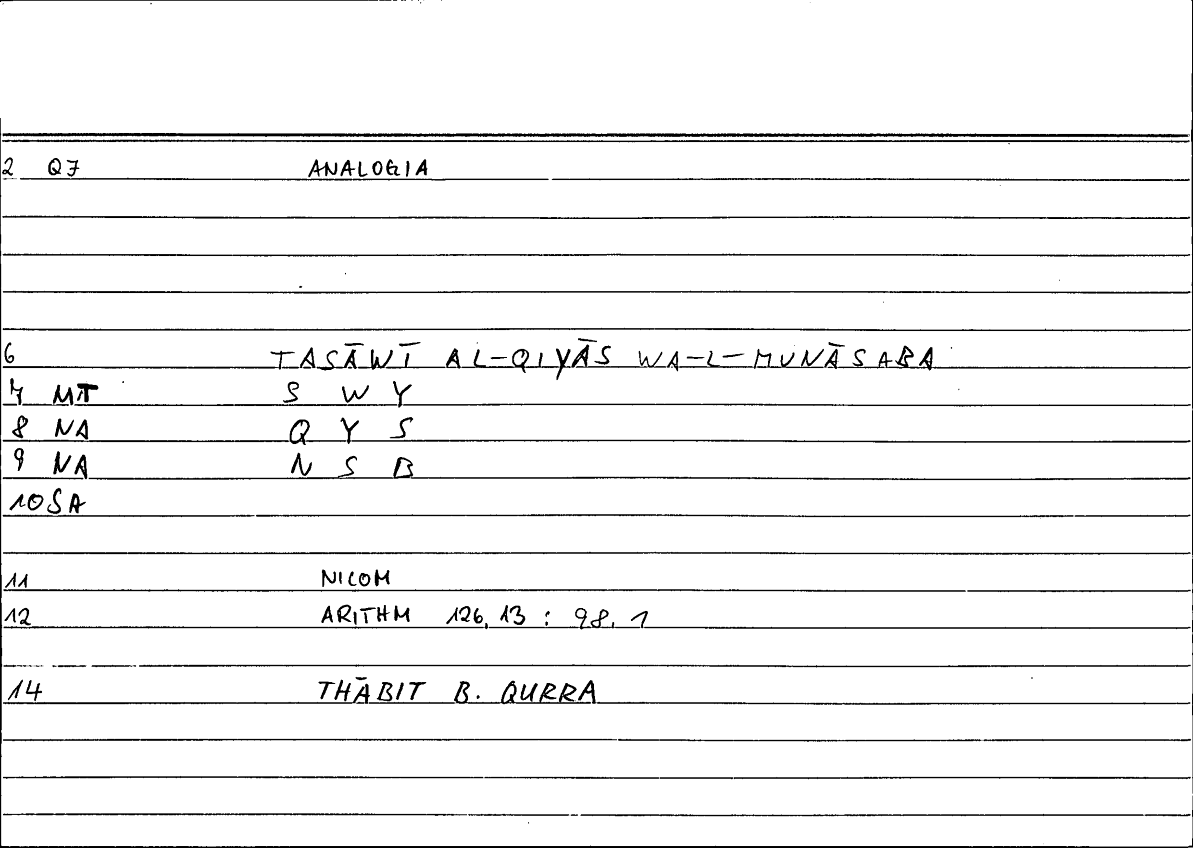 2 Q7 ANALOGIA
6 TASĀWĪ AL-QIYĀS WA-L-MUNĀSABA
7 MT S W Y
8 NA Q Y S
9 NA N S B
10 SA
11 NICOM
12 ARITHM 126,13 : 98,1
14 THĀBIT B. QURRA